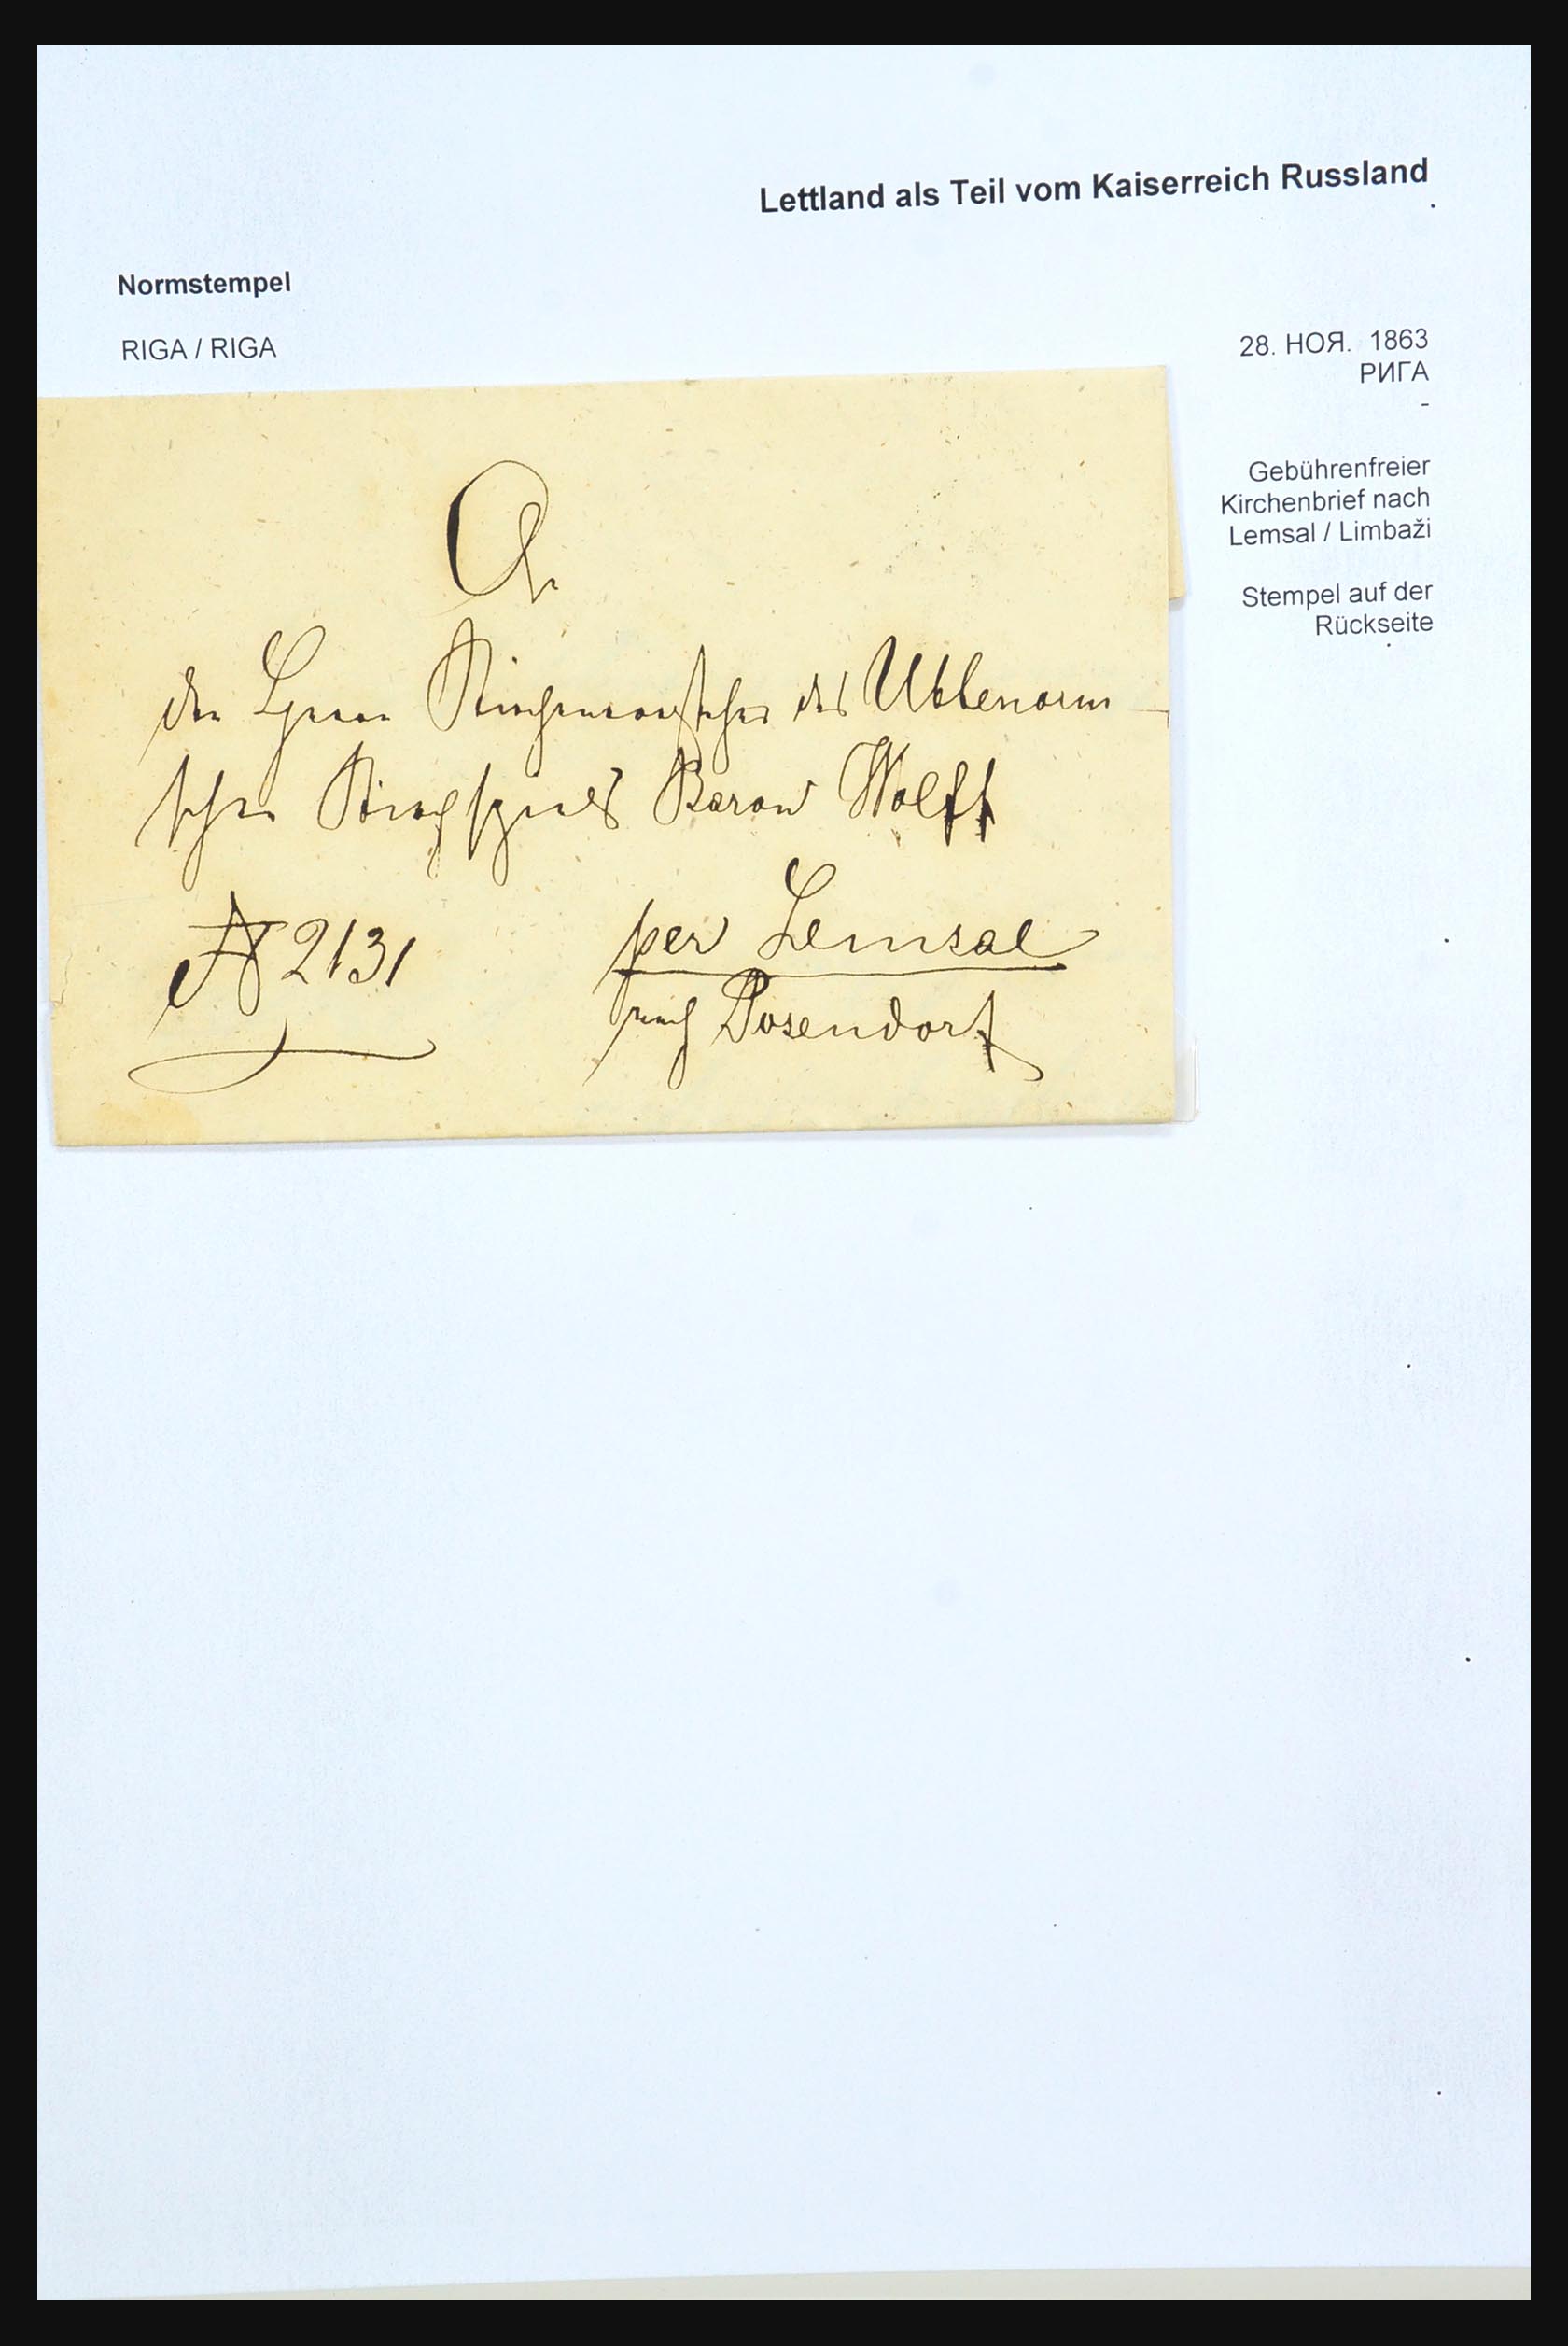 Lettland als Teil vom Kaiserreich Russland
Normstempel
RIGA / RIGA
28. НОЯ. 1863
РИГА
-
Gebührenfreier
Kirchenbrief nach
Lemsal / Limbaži
Stempel auf der
Rückseite
An
den Herrn Kirchenvorsteher des Ubbenorm-
schen Kirchspiels Baron Wolff
№ 2131
per Lemsal
nach Posendorf